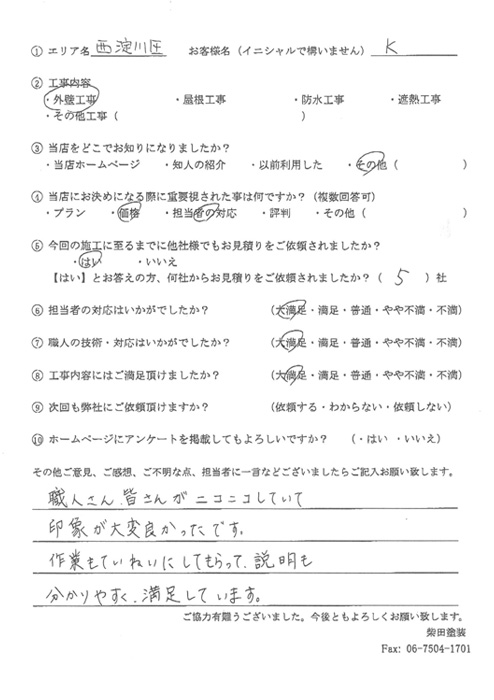 ① エリア名 西淀川区 お客様名（イニシャルで構いません） K
② 工事内容
・外壁工事 ・屋根工事 ・防水工事 ・遮熱工事
・その他工事（ ）
③ 当店をどこでお知りになりましたか？
・当店ホームページ ・知人の紹介 ・以前利用した ・その他（ ）
④ 当店にお決めになる際に重要視された事は何ですか？（複数回答可）
・プラン ・価格 ・担当者の対応 ・評判 ・その他（ ）
⑤ 今回の施工に至るまでに他社様でもお見積りをご依頼されましたか？
・はい ・いいえ
【はい】とお答えの方、何社からお見積りをご依頼されましたか？（ 5 ）社
⑥ 担当者の対応はいかがでしたか？ （大満足・満足・普通・やや不満・不満）
⑦ 職人の技術・対応はいかがでしたか？ （大満足・満足・普通・やや不満・不満）
⑧ 工事内容にはご満足頂けましたか？ （大満足・満足・普通・やや不満・不満）
⑨ 次回も弊社にご依頼頂けますか？ （依頼する・わからない・依頼しない）
⑩ ホームページにアンケートを掲載してもよろしいですか？ （・はい ・いいえ）
その他ご意見、ご感想、ご不明な点、担当者に一言などございましたらご記入お願い致します。
職人さん、皆さんがニコニコしていて
印象が大変良かったです。
作業もていねいにしてもらって、説明も
分かりやすく、満足しています。
ご協力有難うございました。今後ともよろしくお願い致します。
柴田塗装
Fax: 06-7504-1701